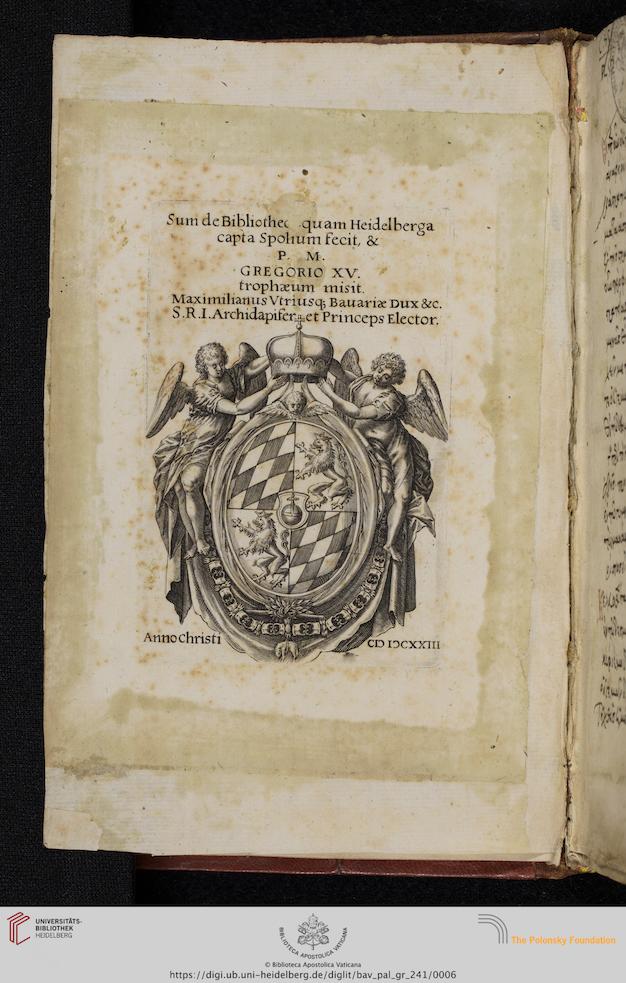 Sum de Bibliothec quam Heidelberga
capta Spolium fecit, &
P. M.
GREGORIO XV.
trophæum misit.
Maximilianus Vtriusq; Bauariæ Dux &c.
S.R.I. Archidapifer et Princeps Elector.
Anno Christi CIↃ IↃCXXIII
UNIVERSITÄTS-
BIBLIOTHEK
HEIDELBERG
BIBLIOTECA APOSTOLICA VATICANA
The Polonsky Foundation
© Biblioteca Apostolica Vaticana
https://digi.ub.uni-heidelberg.de/diglit/bav_pal_gr_241/0006